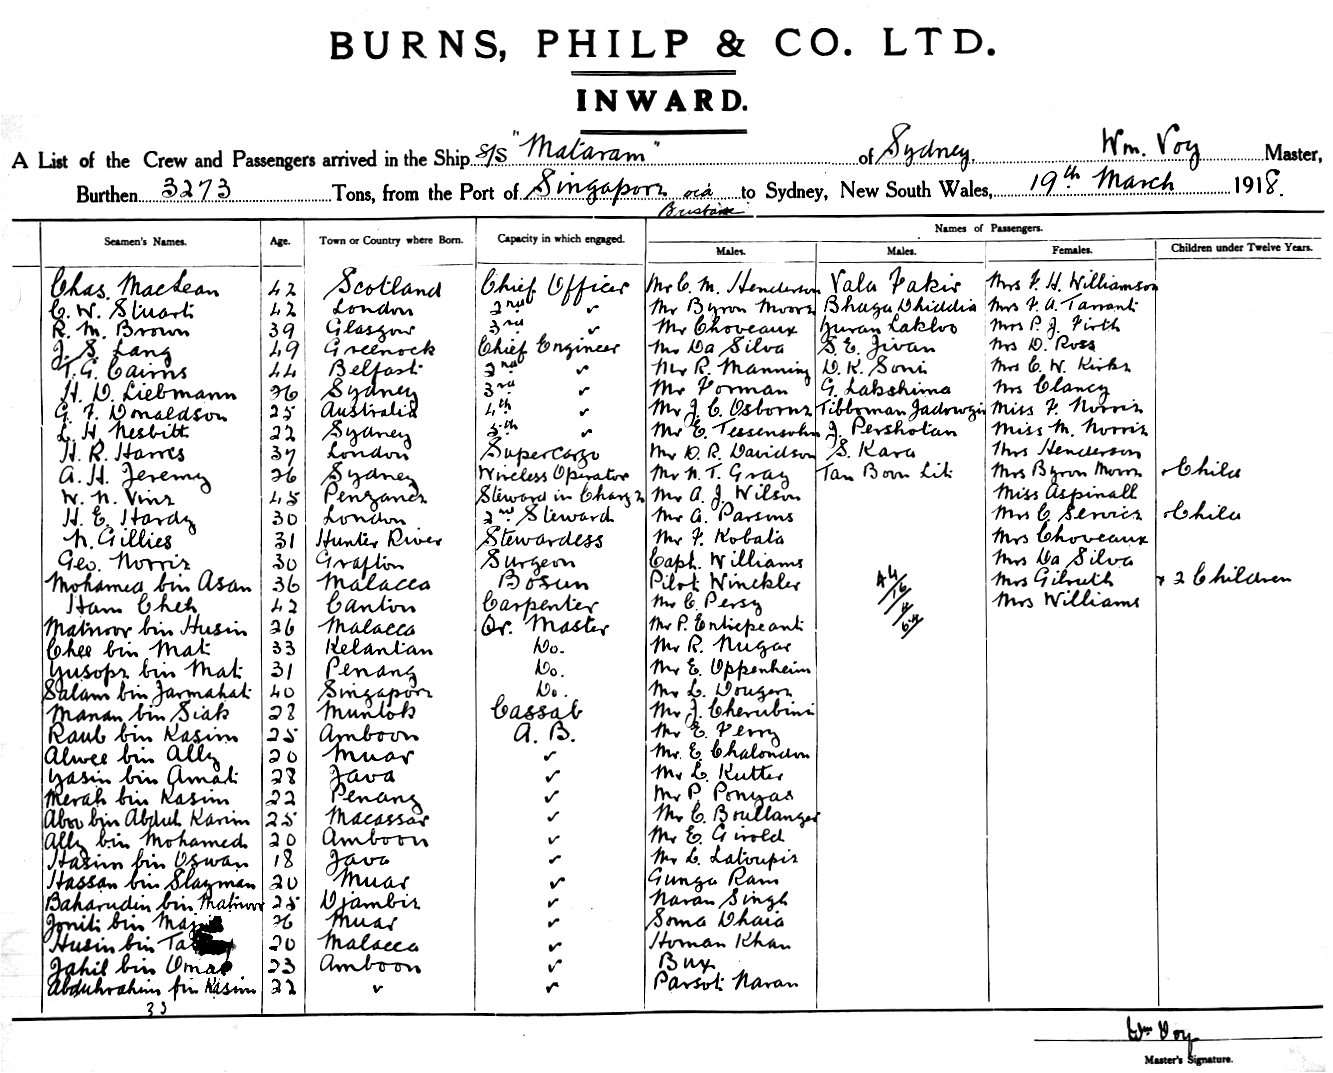 BURNS, PHILP & CO. LTD.
INWARD.
A List of the Crew and Passengers arrived in the Ship S/S "Mataram" of Sydney, Wm. Voy Master,
Burthen 3273 Tons, from the Port of Singapore via Brisbane to Sydney, New South Wales, 19th March 1918.
Names of Passengers.
Seamen's Names. Age. Town or Country where Born. Capacity in which engaged. Males. Males. Females. Children under Twelve Years.
Chas. MacLean 42 Scotland Chief Officer Mr C. M. Henderson Vala Fakir Mrs F. H. Williamson
C. W. Stuart 42 London 2nd " Mr Byron Moore Bhaga Dhiddia Mrs F. A. Tarrant
R. M. Brown 39 Glasgow 3rd " Mr Choveaux Lakloo Mrs P. J. Firth
J. S. Lang 49 Greenock Chief Engineer Mr Da Silva S. E. Jivan Mrs D. Ross
T. G. Cairns 44 Belfast 2nd " Mr R. Manning D. K. Soni Mrs C. W. Kirk
H. D. Liebmann 26 Sydney 3rd " Mr Forman G. Lakshima Mrs Clancy
G. F. Donaldson 25 Australia 4th " Mr J. C. Osborne Tibboman Miss F. Norris
L. H. Nesbitt 22 Sydney 5th " Mr E. Tessensohn J. Pershotan Miss M. Norris
H. R. Harres 37 London Supercargo Mr D. R. Davidson S. Kara Mrs Henderson
A. H. Jeremy 26 Sydney Wireless Operator Mr N. T. Gray Tan Boon Lit Mrs Byron Moore & Child
W. N. Vine 45 Penzance Steward in Charge Mr A. J. Wilson Miss Aspinall
H. E. Hardy 30 London 2nd Steward Mr A. Parsons Mrs C Service & Child
N. Gillies 31 Hunter River Stewardess Mr F. Kobata Mrs Choveaux
Geo. Norrie 30 Grafton Surgeon Capt. Williams Mrs Da Silva
Mohamed bin Asan 36 Malacca Bosun Pilot Winckler Mrs Gilruth & 2 Children
Ham Cheh 42 Canton Carpenter Mr C. Persy Mrs Williams
Matnoor bin Husin 26 Malacca Qr. Master Mr P. Entiepeanti
Chee bin Mat 33 Kelantan Do. Mr R. Nugar
Yusope bin Mat 31 Penang Do. Mr E. Oppenheim
Salam bin Jarmahat 40 Singapore Do. Mr L. Dougere
Manan bin Siak 28 Muntok Cassab Mr J. Cherubini
Raub bin Kasim 25 Amboon A. B. Mr E. Ferry
Alwee bin Ally 20 Muar " Mr E. Chalondon
Yasin bin Amat 28 Java " Mr L. Kutter
Merah bin Kasim 22 Penang " Mr P. Ponyas
Aboo bin Abdul Karim 25 Macassar " Mr C. Boullanger
Ally bin Mohamed 20 Amboon " Mr E. Girold
Hasim bin Oswan 18 Java " Mr L. Latoupie
Hassan bin Slayman 20 Muar " Gunga Ram
Baharudin bin Matnoor 25 Djambie " Naran Singh
Joniti bin 26 Muar " Soma Dhaia
Husin bin 20 Malacca " Homan Khan
Jahil bin Omar 23 Amboon " Bux
Abduhrahim bin Kasim 32 " " Parsot Naran
33
Wm Voy
Master's Signature.